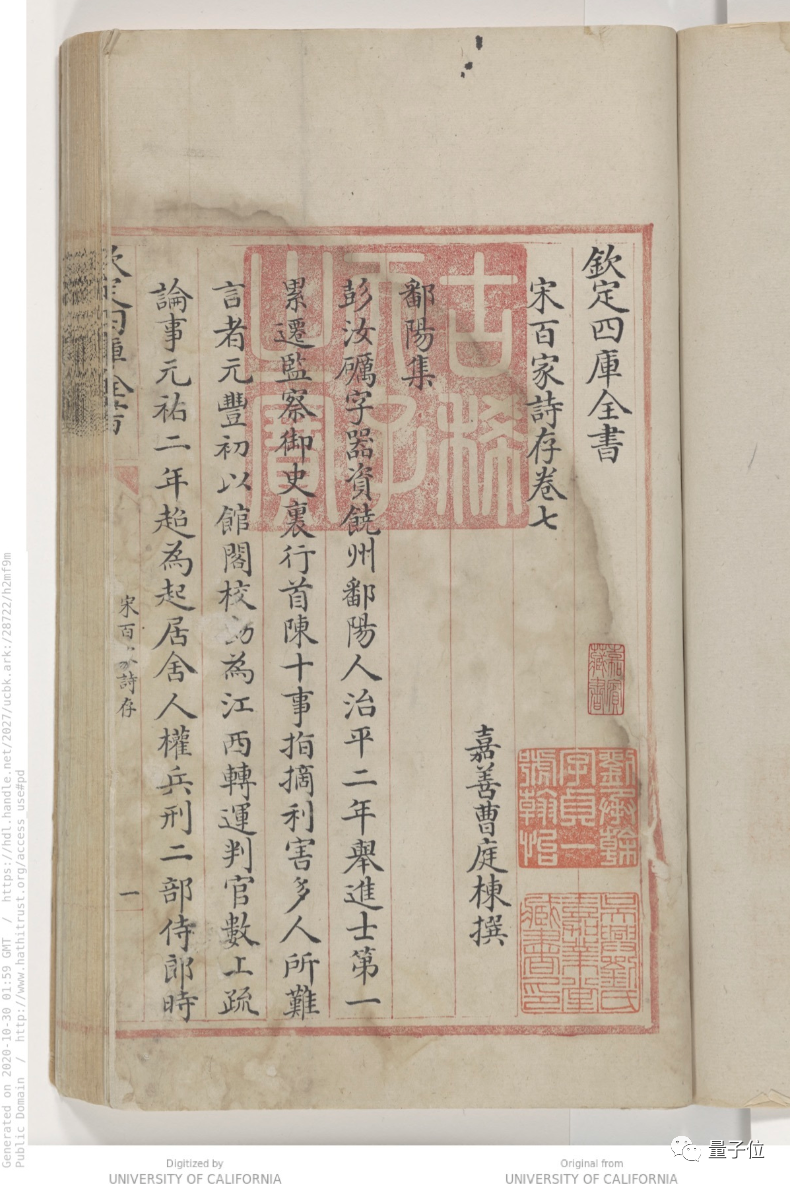 欽定四庫全書
宋百家詩存卷七
嘉善曹庭棟撰
鄱陽集
彭汝礪字器資饒州鄱陽人治平二年舉進士第一
累遷監察御史裏行首陳十事指摘利害多人所難
言者元豐初以館閣校勘為江西轉運判官數上疏
論事元祐二年起為起居舍人權兵刑二部侍郎時
宋百家詩存
一
欽定四庫全書
古稀天子之寶
劉承幹字貞一號翰怡
吳興劉氏嘉業堂藏書印
Generated on 2020-10-30 01:59 GMT / https://hdl.handle.net/2027/ucbk.ark:/28722/h2mf9m
Public Domain / http://www.hathitrust.org/access_use#pd
Digitized by
UNIVERSITY OF CALIFORNIA
Original from
UNIVERSITY OF CALIFORNIA
量子位